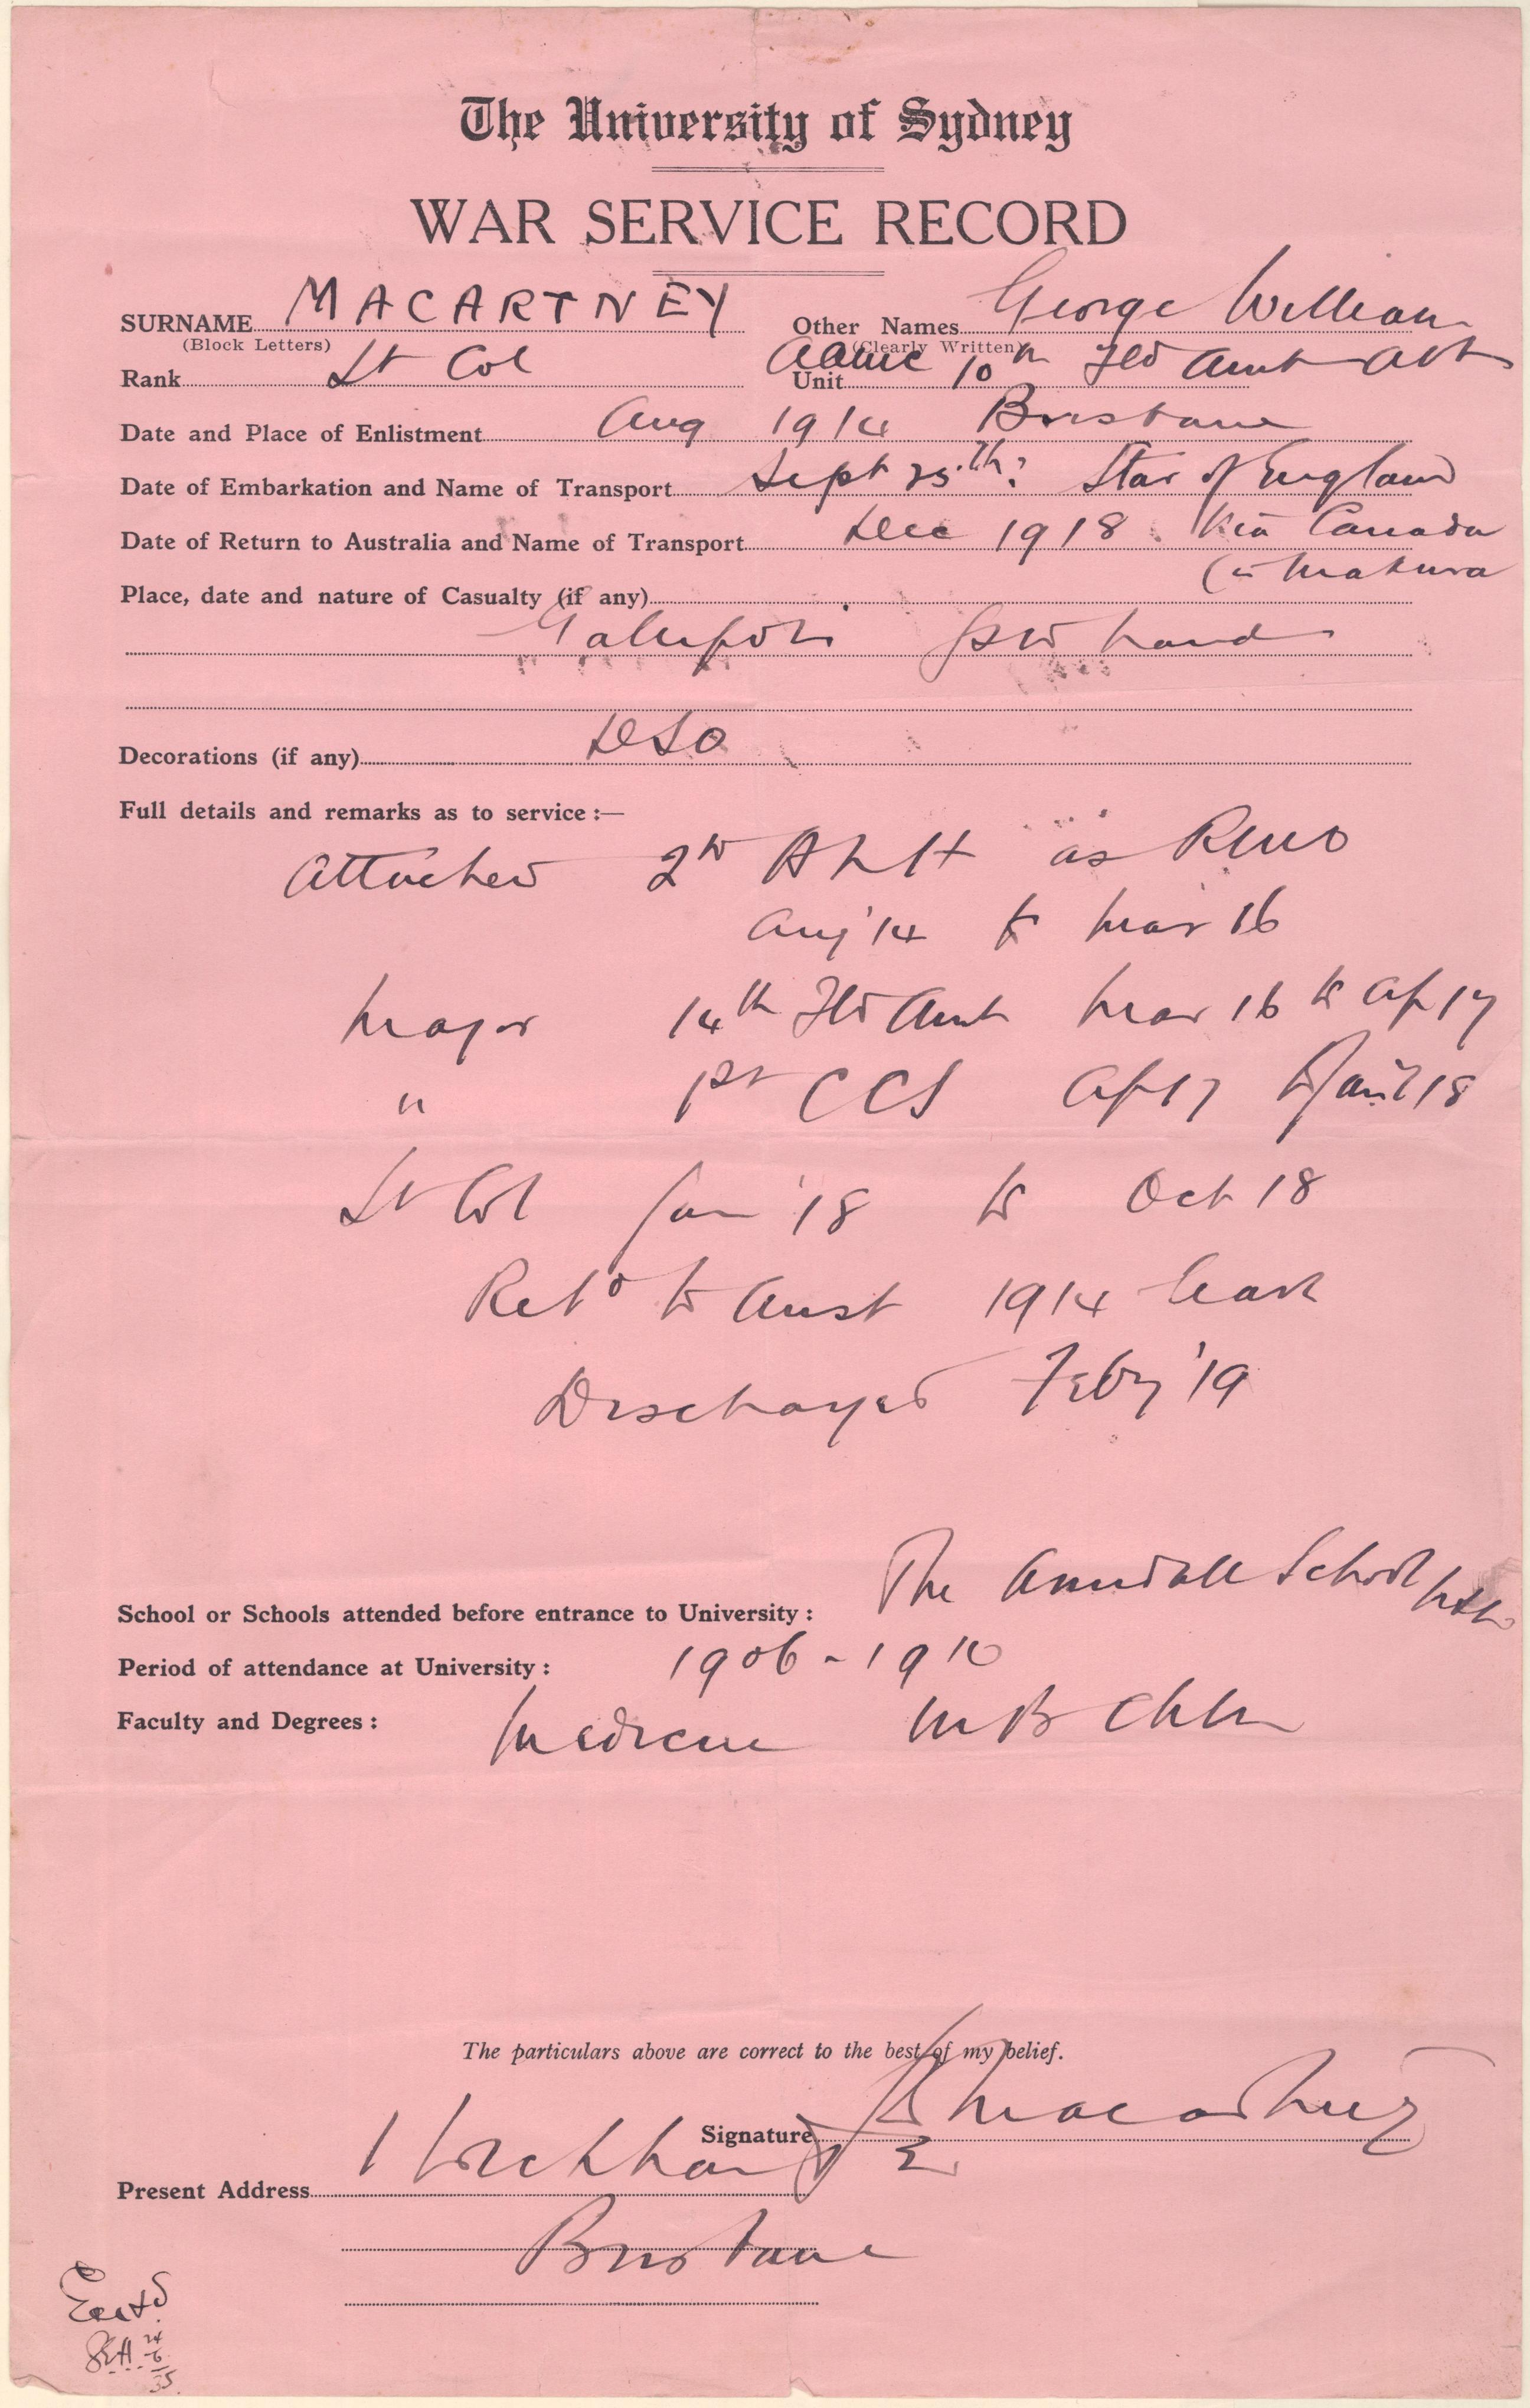 The University of Sydney
WAR SERVICE RECORD
SURNAME MACARTNEY Other Names George William
(Block Letters) (Clearly Written)
Rank Lt Col Unit AAMC 10th Fld Amb
Date and Place of Enlistment Aug 1914 Brisbane
Date of Embarkation and Name of Transport Sept 25th? Star of England
Date of Return to Australia and Name of Transport Dec 1918. Via Canada
Makura
Place, date and nature of Casualty (if any)
Gallipoli GSW hand
Decorations (if any) DSO
Full details and remarks as to service :—
Attached 2nd ALH as RMO
Aug '14 to Mar 16
Major 14th Fld Amb Mar 16 to Ap 17
" 1st CCS Ap 17 to Jan 18
Lt Col Jan '18 to Oct 18
Retd to Aust 1914 leave
Discharged Feby '19
School or Schools attended before entrance to University : The Armidale School NSW
Period of attendance at University : 1906 - 1910
Faculty and Degrees : Medicine MB ChM
The particulars above are correct to the best of my belief.
Signature GW Macartney
Present Address Wickham
Brisbane
Entd
24
6
35